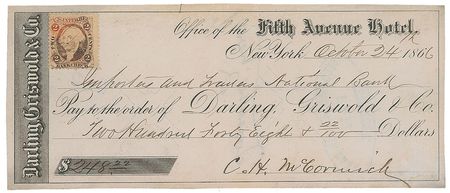 Darling, Griswold & Co.
Office of the Fifth Avenue Hotel,
New York October 24 1866
Importers and Traders National Bank
Pay to the order of Darling, Griswold & Co.
Two Hundred Forty Eight & 22/100 Dollars
$248.22
C. H. McCormick